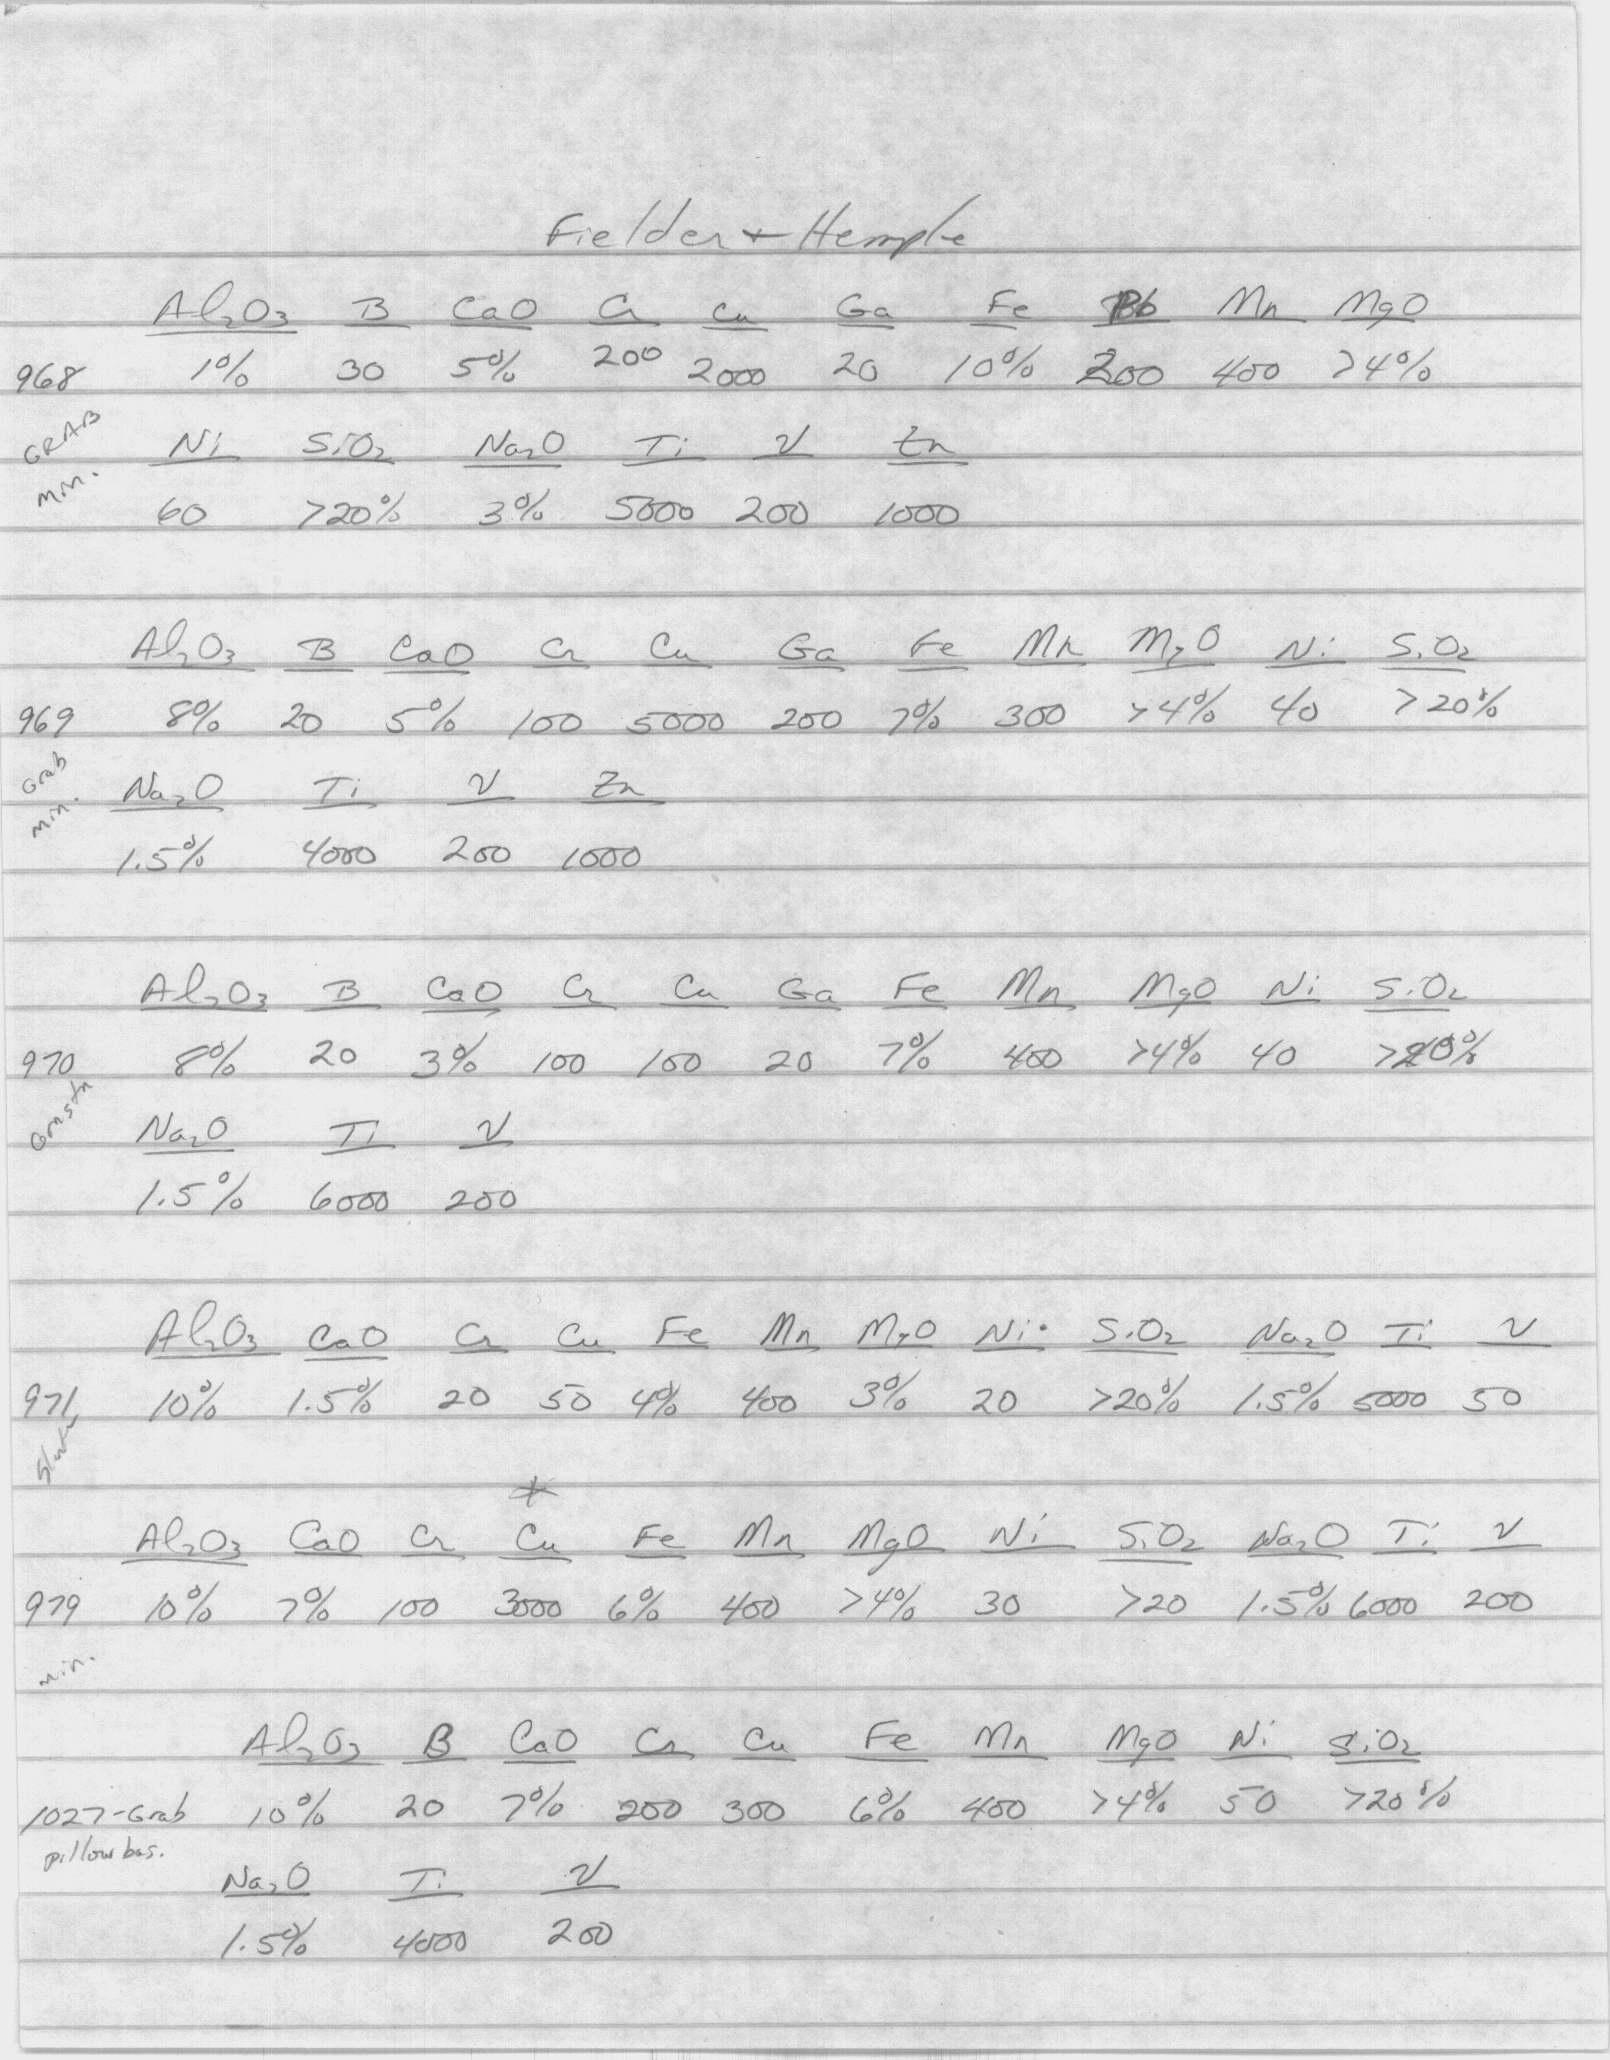 Fielder + Hemple
Al2O3 B CaO Cr Cu Ga Fe Pb Mn MgO
968 1% 30 5% 200 2000 20 10% 200 400 >4%
GRAB min.
Ni SiO2 Na2O Ti V Zn
60 >20% 3% 5000 200 1000
Al2O3 B CaO Cr Cu Ga Fe Mn MgO Ni SiO2
969 8% 20 5% 100 5000 200 7% 300 >4% 40 >20%
Grab min.
Na2O Ti V Zn
1.5% 4000 200 1000
Al2O3 B CaO Cr Cu Ga Fe Mn MgO Ni SiO2
970 8% 20 3% 100 100 20 7% 400 >4% 40 >20%
Grnstn
Na2O Ti V
1.5% 6000 200
Al2O3 CaO Cr Cu Fe Mn MgO Ni SiO2 Na2O Ti V
971 10% 1.5% 20 50 4% 400 3% 20 >20% 1.5% 5000 50
Slate
*
Al2O3 CaO Cr Cu Fe Mn MgO Ni SiO2 Na2O Ti V
979 10% 7% 100 3000 6% 400 >4% 30 >20 1.5% 6000 200
min.
Al2O3 B CaO Cr Cu Fe Mn MgO Ni SiO2
1027-Grab 10% 20 7% 200 300 6% 400 >4% 50 >20%
pillow bas.
Na2O Ti V
1.5% 4000 200